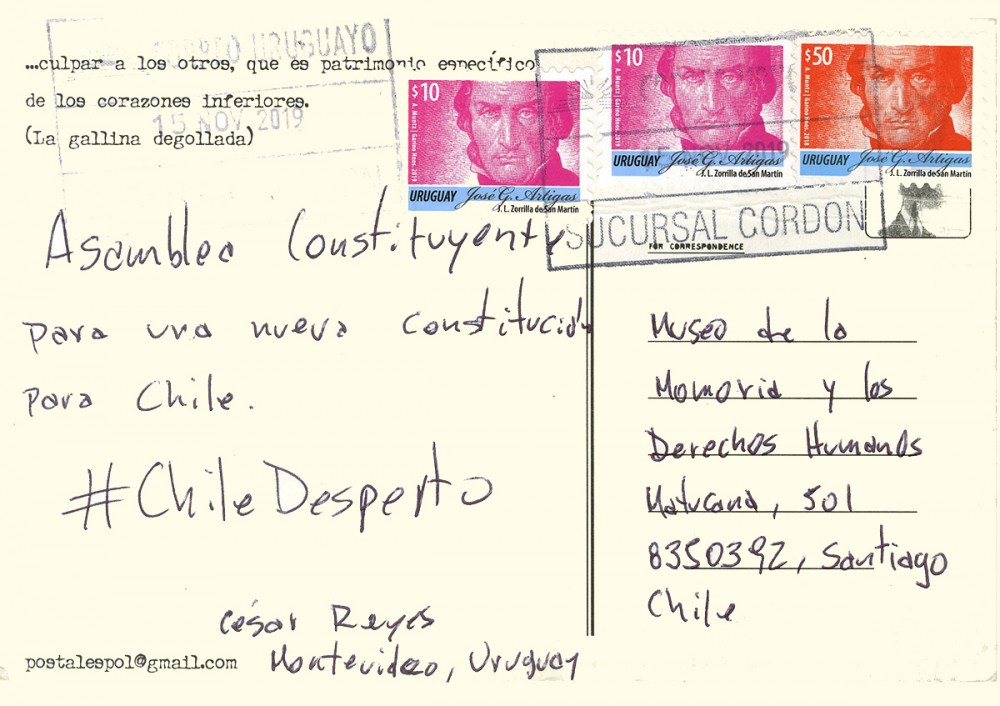 CORREO URUGUAYO
...culpar a los otros, que es patrimonio específico
de los corazones inferiores.
15 NOV 2019
(La gallina degollada)
$10
A. Muntz | Garino Hnos. 2019
URUGUAY José G. Artigas
J. L. Zorrilla de San Martín
$10
A. Muntz | Garino Hnos. 2019
URUGUAY José G. Artigas
J. L. Zorrilla de San Martín
$50
URUGUAY José G. Artigas
J. L. Zorrilla de San Martín
2019
SUCURSAL CORDON
FOR CORRESPONDENCE
Asamblea Constituyente
para una nueva constitución
para Chile.
#ChileDesperto
César Reyes
Montevideo, Uruguay
postalespol@gmail.com
Museo de la
Memoria y los
Derechos Humanos
Matucana, 501
8350392, Santiago
Chile